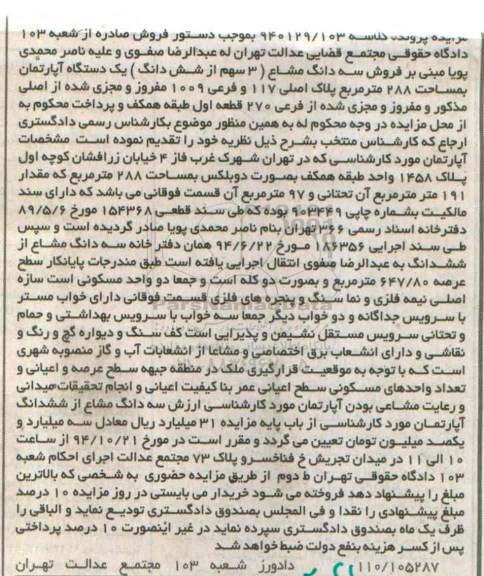 مزایده پرونده کلاسه ۹۴۰۱۲۹/۱۰۳ بموجب دستور فروش صادره از شعبه ۱۰۳
دادگاه حقوقی مجتمع قضایی عدالت تهران له عبدالرضا صفوی و علیه ناصر محمدی
پویا مبنی بر فروش سه دانگ مشاع ( ۳ سهم از شش دانگ ) یک دستگاه آپارتمان
بمساحت ۲۸۸ مترمربع پلاک اصلی ۱۱۷ و فرعی ۱۰۰۹ مفروز و مجزی شده از اصلی
مذکور و مفروز و مجزی شده از فرعی ۲۷۰ قطعه اول طبقه همکف و پرداخت محکوم به
از محل مزایده در وجه محکوم له به همین منظور موضوع بکارشناس رسمی دادگستری
ارجاع که کارشناس منتخب بشرح ذیل نظریه خود را تقدیم نموده است مشخصات
آپارتمان مورد کارشناسی که در تهران شهرک غرب فاز ۴ خیابان زرافشان کوچه اول
پلاک ۱۴۵۸ واحد طبقه همکف بصورت دوبلکس بمساحت ۲۸۸ مترمربع که مقدار
۱۹۱ متر مترمربع آن تحتانی و ۹۷ مترمربع آن قسمت فوقانی می باشد که دارای سند
مالکیت بشماره چاپی ۹۰۳۴۴۹ بوده که طی سند قطعی ۱۵۴۳۶۸ مورخ ۸۹/۵/۶
دفترخانه اسناد رسمی ۳۶۶ تهران بنام ناصر محمدی پویا صادر گردیده است و سپس
طی سند اجرایی ۱۸۶۳۵۶ مورخ ۹۴/۶/۲۲ همان دفتر خانه سه دانگ مشاع از
ششدانگ به عبدالرضا صفوی انتقال اجرایی یافته است طبق مندرجات پایانکار سطح
عرصه ۶۴۷/۸۰ مترمربع و بصورت دو کله است و جمعا دو واحد مسکونی است سازه
اصلی نیمه فلزی و نما سنگ و پنجره های فلزی قسمت فوقانی دارای خواب مستر
با سرویس جداگانه و دو خواب دیگر جمعا سه خواب با سرویس بهداشتی و حمام
و تحتانی سرویس مستقل نشیمن و پذیرایی است کف سنگ و دیواره گچ و رنگ و
نقاشی و دارای انشعاب برق اختصاصی و مشاعا از انشعابات آب و گاز منصوبه شهری
است که با توجه به موقعیت قرارگیری ملک در منطقه جبهه سطح عرصه و اعیانی و
تعداد واحدهای مسکونی سطح اعیانی عمر بنا کیفیت اعیانی و انجام تحقیقات میدانی
و رعایت مشاعی بودن آپارتمان مورد کارشناسی ارزش سه دانگ مشاع از ششدانگ
آپارتمان مورد کارشناسی از باب پایه مزایده ۳۱ میلیارد ریال معادل سه میلیارد و
یکصد میلیون تومان تعیین می گردد و مقرر است در مورخ ۹۴/۱۰/۲۱ از ساعت
۱۰ الی ۱۱ در میدان تجریش خ فناخسرو پلاک ۷۳ مجتمع عدالت اجرای احکام شعبه
۱۰۳ دادگاه حقوقی تهران ط دوم از طریق مزایده حضوری به شخصی که بالاترین
مبلغ را پیشنهاد دهد فروخته می شود خریدار می بایستی در روز مزایده ۱۰ درصد
مبلغ پیشنهادی را نقدا و فی المجلس بصندوق دادگستری تودیع نماید و الباقی را
ظرف یک ماه بصندوق دادگستری سپرده نماید در غیر اینصورت ۱۰ درصد پرداختی
پس از کسر هزینه بنفع دولت ضبط خواهد شد
۱۱۰/۱۰۵۲۸۷ دادورز شعبه ۱۰۳ مجتمع عدالت تهران